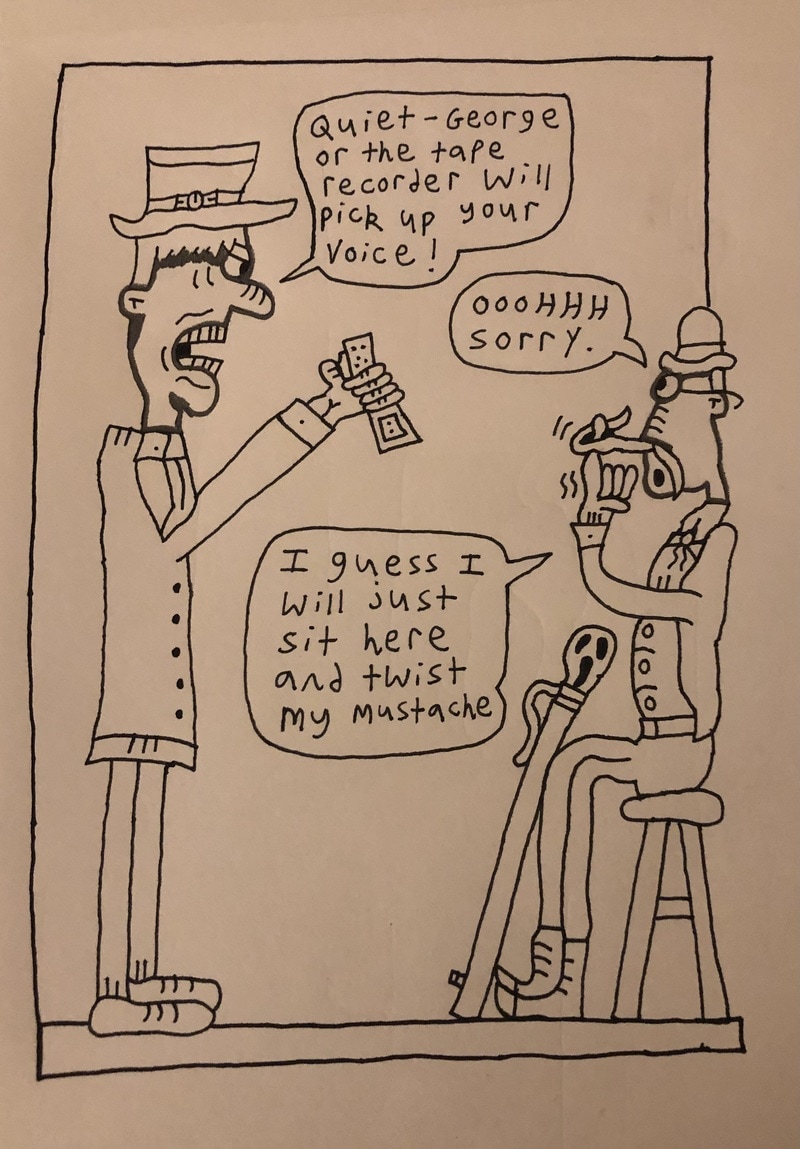 Quiet-George
or the tape
recorder will
pick up your
voice!
OOOHHH
sorry.
I guess I
will just
sit here
and twist
my mustache